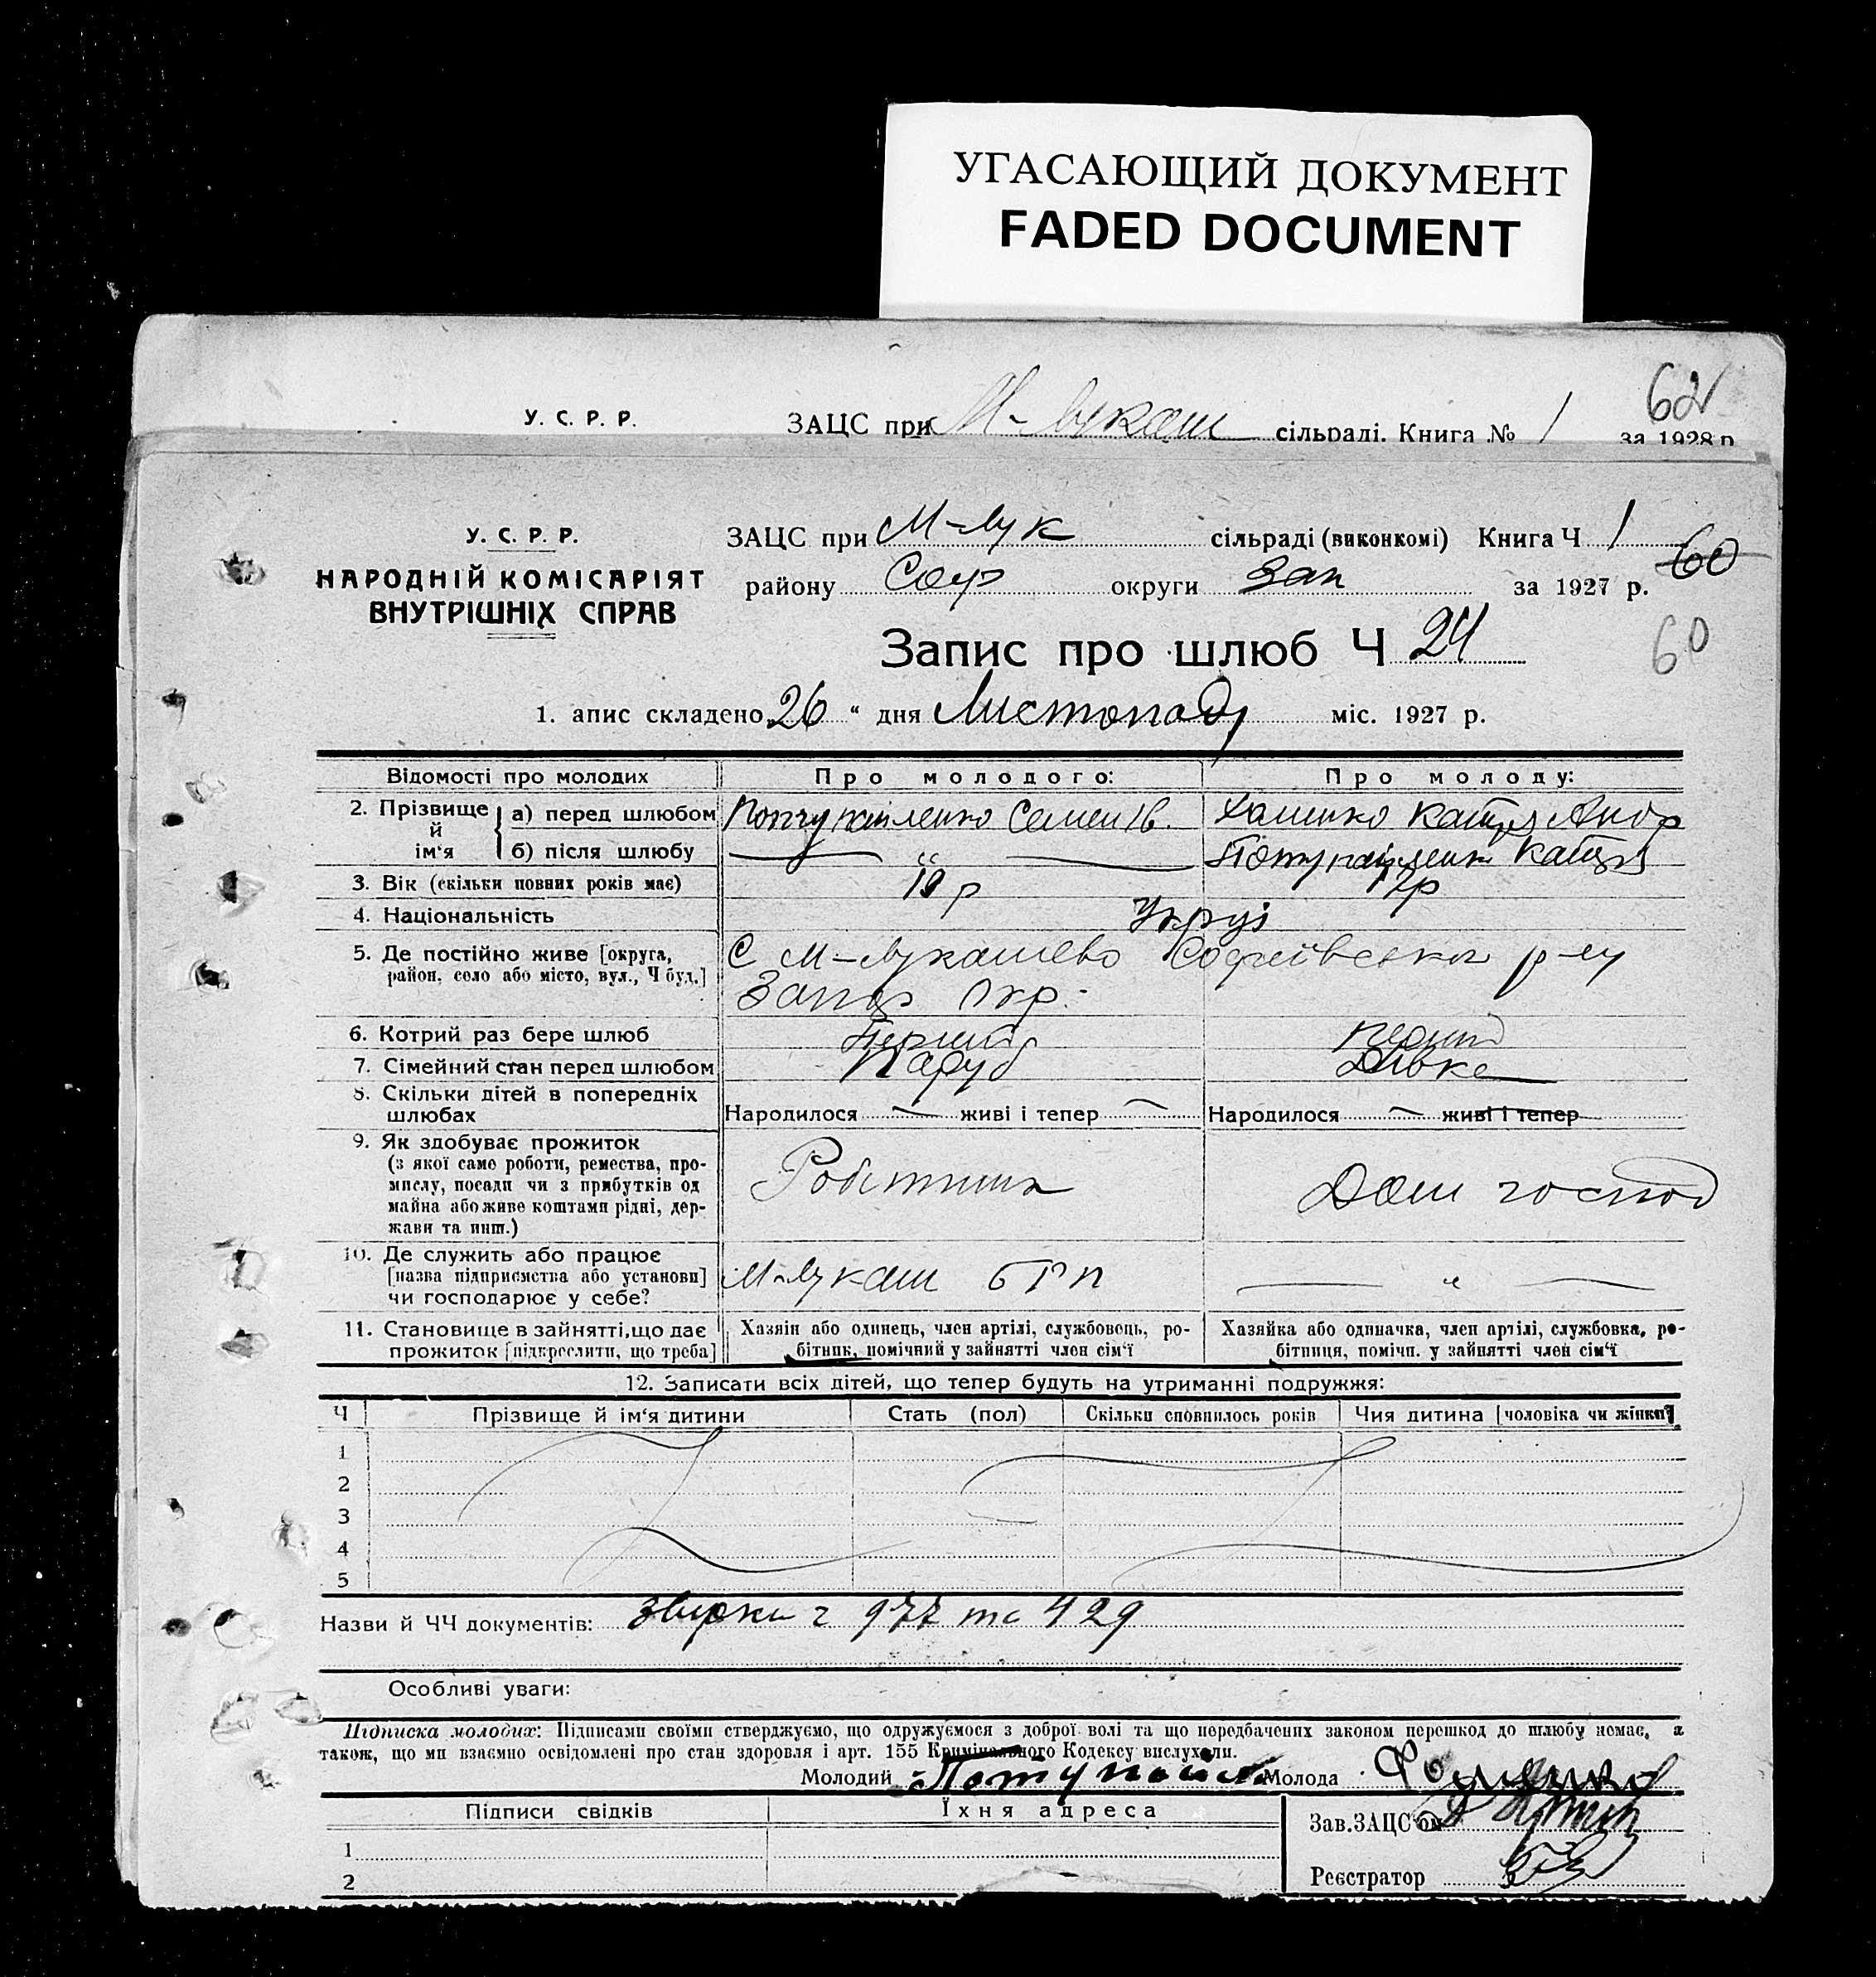 УГАСАЮЩИЙ ДОКУМЕНТ
FADED DOCUMENT
62
У. С. Р. Р. ЗАЦС при М-Лукаш сільраді. Книга № 1 за 1928 р.
У. С. Р. Р. ЗАЦС при М-Лук сільраді (виконкомі) Книга Ч 1
60
НАРОДНІЙ КОМІСАРІЯТ району Соф округи Зап за 1927 р.
ВНУТРІШНІХ СПРАВ
Запис про шлюб Ч 24
60
1. апис складено „26“ дня Листопаду міс. 1927 р.
Відомості про молодих Про молодого: Про молоду:
2. Прізвище й ім'я а) перед шлюбом Семен Ів. Катря Андр
б) після шлюбу — „ — Катря
3. Вік (скільки повних років має) 19 р
4. Національність Украї
5. Де постійно живе [округа, С М-Лукашево Софіївська р-ну
район, село або місто, вул., Ч буд.] Запор Окр.
6. Котрий раз бере шлюб Перший Перший
7. Сімейний стан перед шлюбом Паруб Дівка
8. Скільки дітей в попередніх
шлюбах Народилося — живі і тепер — Народилося — живі і тепер
9. Як здобуває прожиток
(з якої само роботи, ремества, про- Робітник Дом господ
мислу, посади чи з прибутків од
майна або живе коштами рідні, дер-
жави та инш.)
10. Де служить або працює
[назва підприємства або установи] М-Лукаш — „ —
чи господарює у себе?
11. Становище в зайнятті, що дає Хазяін або одинець, член артілі, службовець, ро- Хазяйка або одиначка, член артілі, службовка, ро-
прожиток [підкреслити, що треба] бітник, помічний у зайнятті член сім'ї бітниця, помічн. у зайнятті член сім'ї
12. Записати всіх дітей, що тепер будуть на утриманні подружжя:
Ч Прізвище й ім'я дитини Стать (пол) Скільки сповнилось років Чия дитина [чоловіка чи жінки]
1
2
3
4
5
Назви й ЧЧ документів: ч 977 та 429
Особливі уваги:
Підписка молодих: Підписами своїми стверджуємо, що одружуємося з доброї волі та що передбачених законом перешкод до шлюбу немає, а
також, що ми взаємно освідомлені про стан здоровля і арт. 155 Кримінального Кодексу вислухали.
Молодий Молода
Підписи свідків Їхня адреса Зав. ЗАЦС'ом
1
2 Реєстратор